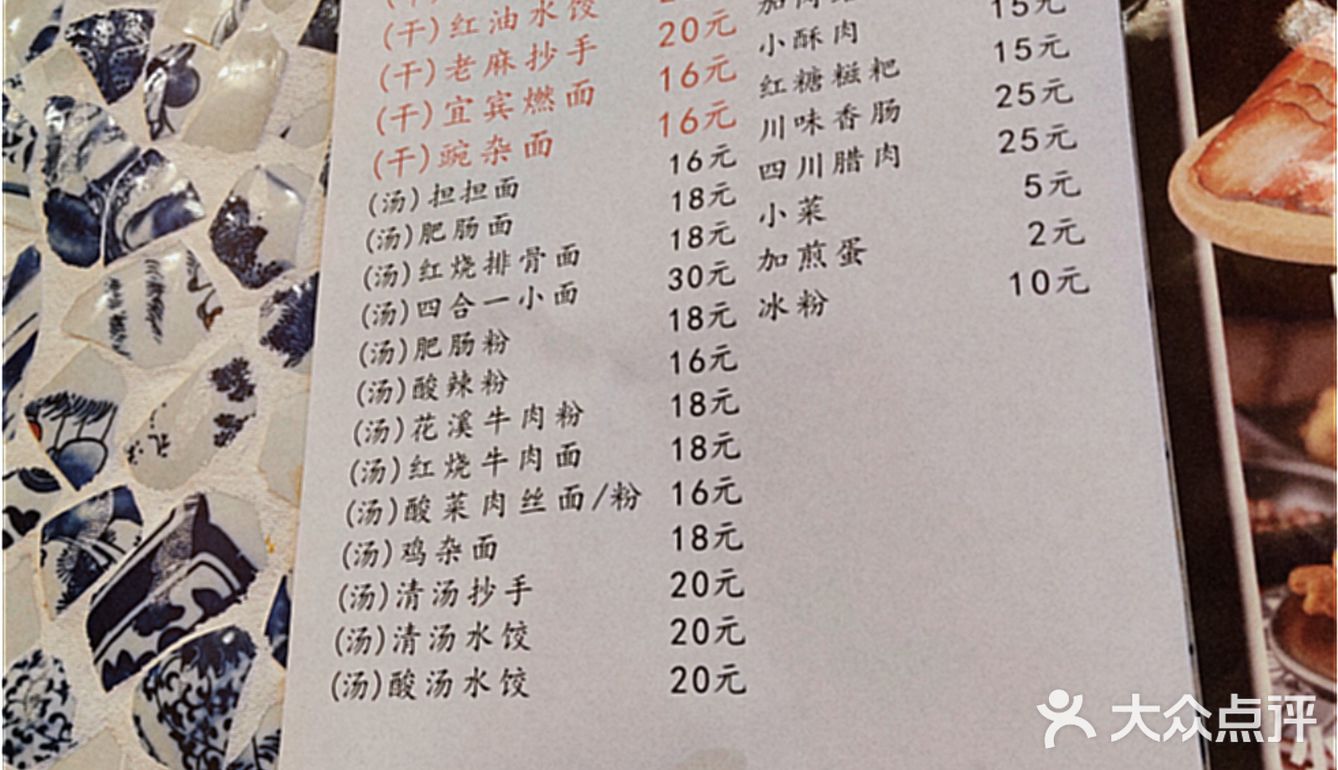 (干)红油水饺
(干)老麻抄手 20元
(干)宜宾燃面 16元
(干)豌杂面 16元
(汤)担担面 16元
(汤)肥肠面 18元
(汤)红烧排骨面 18元
(汤)四合一小面 30元
(汤)肥肠粉 18元
(汤)酸辣粉 16元
(汤)花溪牛肉粉 18元
(汤)红烧牛肉面 18元
(汤)酸菜肉丝面/粉 16元
(汤)鸡杂面 18元
(汤)清汤抄手 20元
(汤)清汤水饺 20元
(汤)酸汤水饺 20元
小酥肉 15元
红糖糍粑 15元
川味香肠 25元
四川腊肉 25元
小菜 5元
加煎蛋 2元
冰粉 10元
大众点评